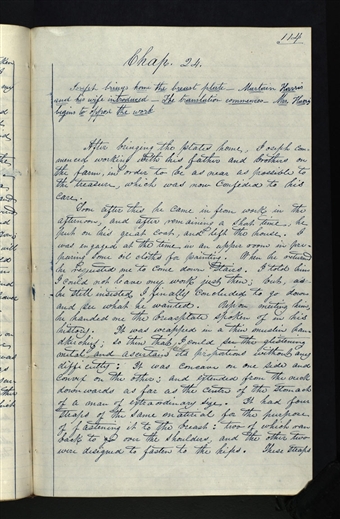 114
Chap. 24.
Joseph brings home the breast plate — Martain Harris
and his wife introduced — The translation commences — Mrs Harris
begins to oppose the work
After bringing the plates home, Joseph com-
menced working with his father and brothers on
the farm, in order to be as near as possible to
the treasure, which was now confided to his
care.
Soon after this he came in from work in the
afternoon, and after remaining a short time, he
put on his great coat, and left the house. I
was engaged at the time in an upper room in pre-
paring some oil cloths for painting. When he returned
he requested me to come down stairs. I told him
I could not leave my work just then; but, as
he still insisted, I finally concluded to go down
and see what he wanted. Upon meeting him,
he handed me the breastplate spoken of in his
history. It was wrapped in a thin muslin han-
dkerchief; so thin that I could see the glistening
metal and ascertain its proportions without any
difficulty; It was concave on one side and
convex on the other; and extended from the neck
downwards as far as the center of the stomach
of a man of extraordinary size. It had four
straps of the same material for the purpose
of fastening it to the breast: two of which ran
back to go over the shoulders, and the other two
were designed to fasten to the hips. These straps